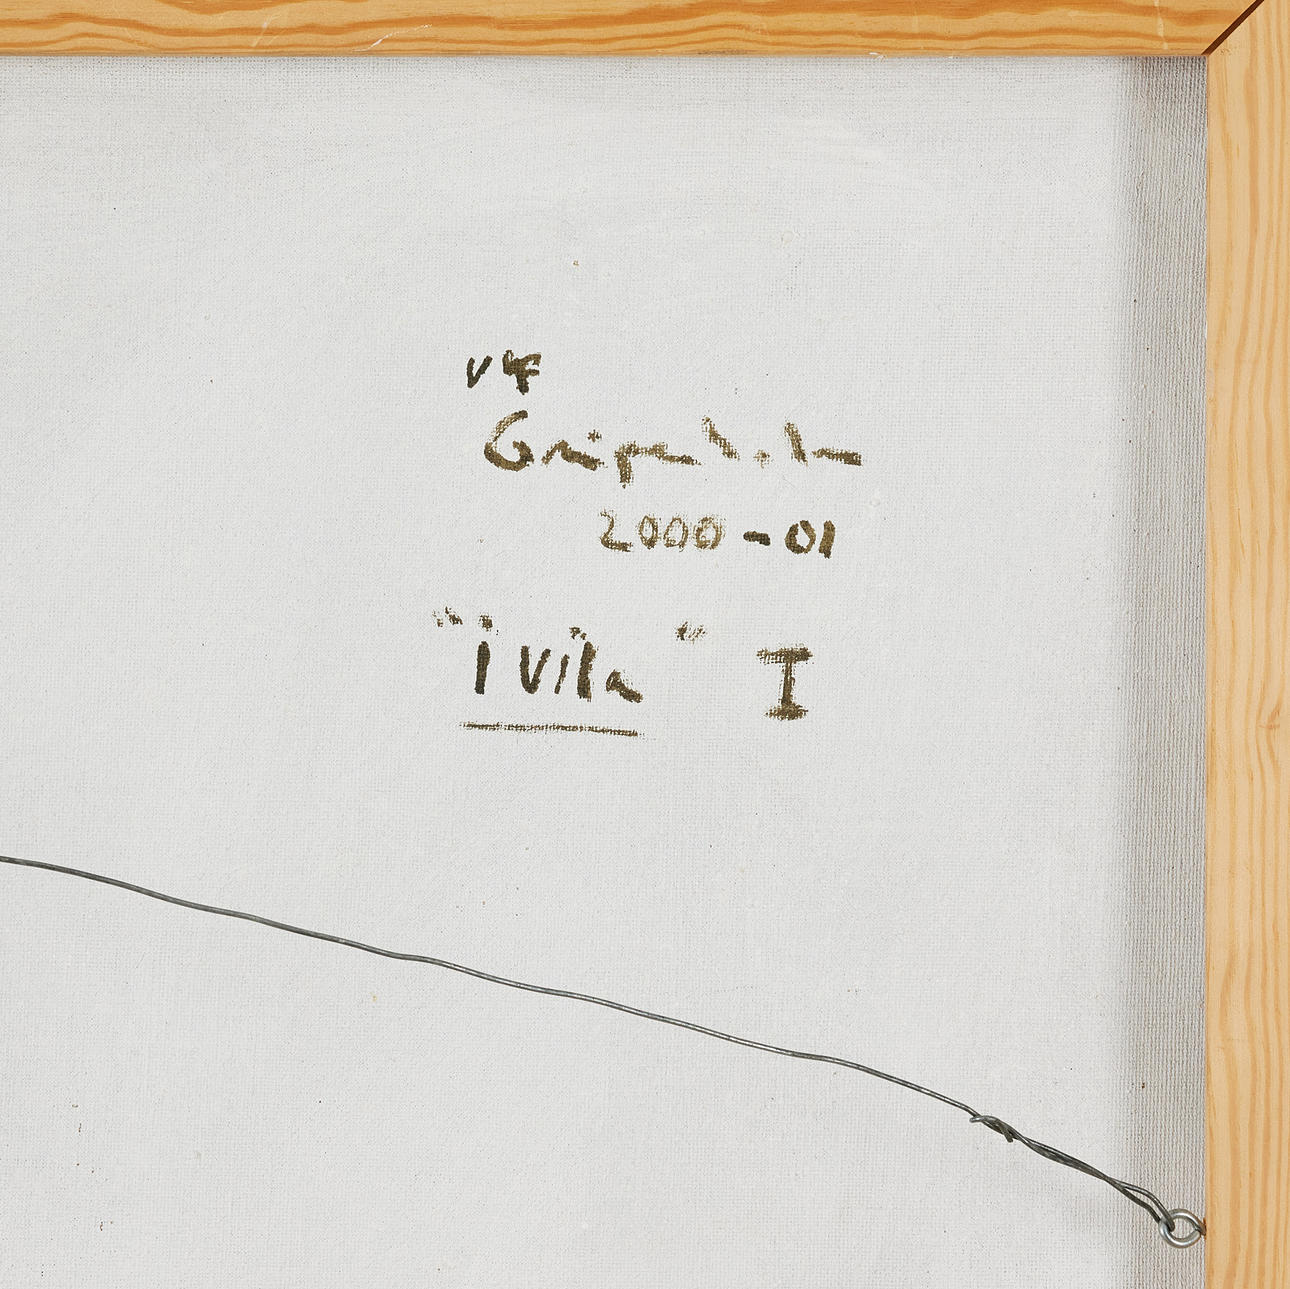 Ulf
Gripenholm
2000-01
"i vila" I